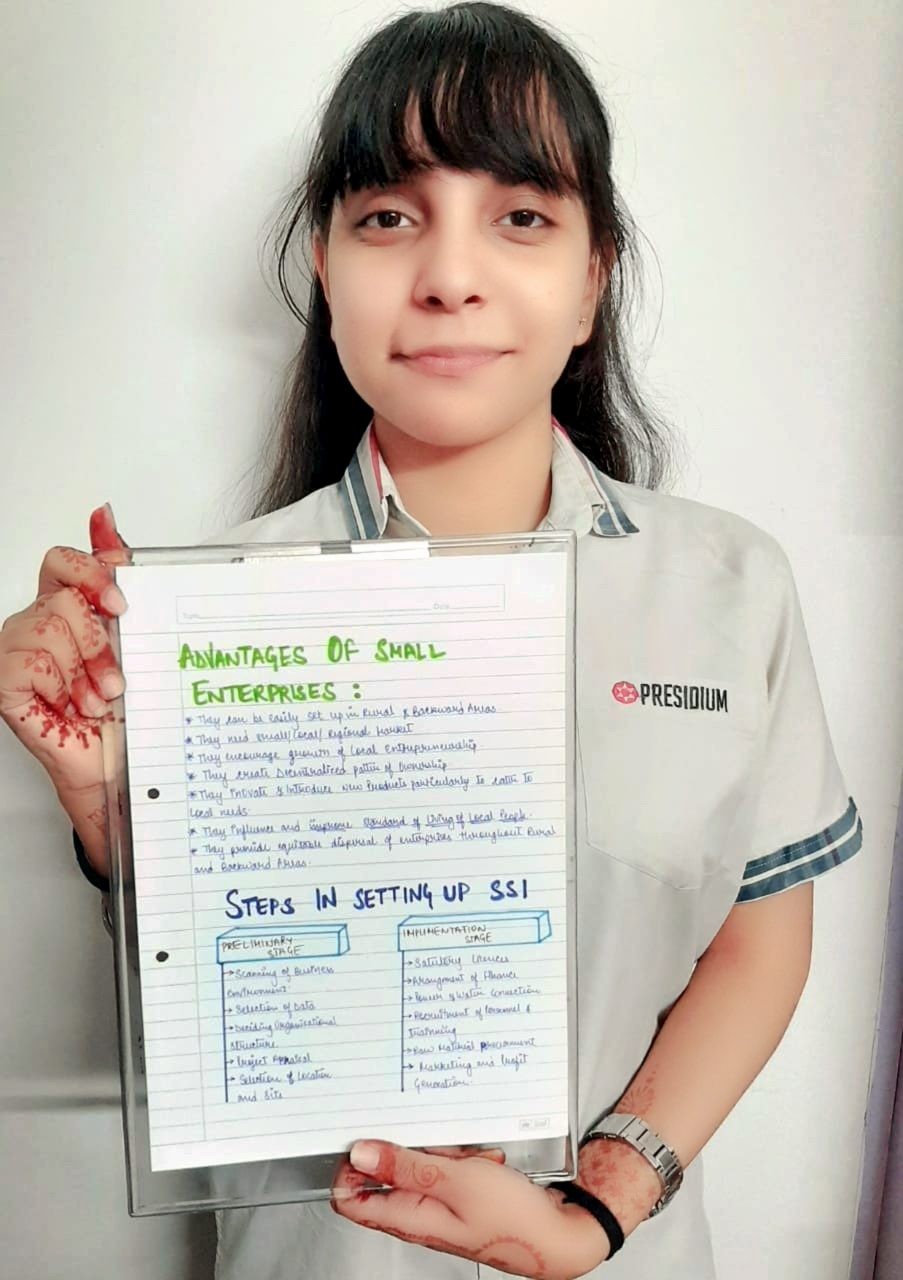 Date
ADVANTAGES OF SMALL
ENTERPRISES :
* They can be easily set up in Rural & Backward Areas
* They need small/local/regional market
* They encourage growth of Local Entrepreneurship
* They create Decentralised pattern of Ownership
* They Inovate & Introduce New Products particularly to cater to
local needs.
* They Influence and improve standard of living of Local People.
* They provide equitable dispersal of enterprises throughout Rural
and Backward Areas.
PRESIDIUM
STEPS IN SETTING UP SSI
PRELIMINARY
STAGE
→ Scanning of Business
Environment.
→ Selection of Data
→ Deciding Organisational
structure.
→ Project
→ Selection of Location
and Site
IMPLIMENTATION
STAGE
→ Satutory Licences
→ Arrangment of Finance
→ Power & Water Connection
→ Recruitment of Personnel &
Trainning
→ Raw Material
→ Marketing and Profit
Generation.